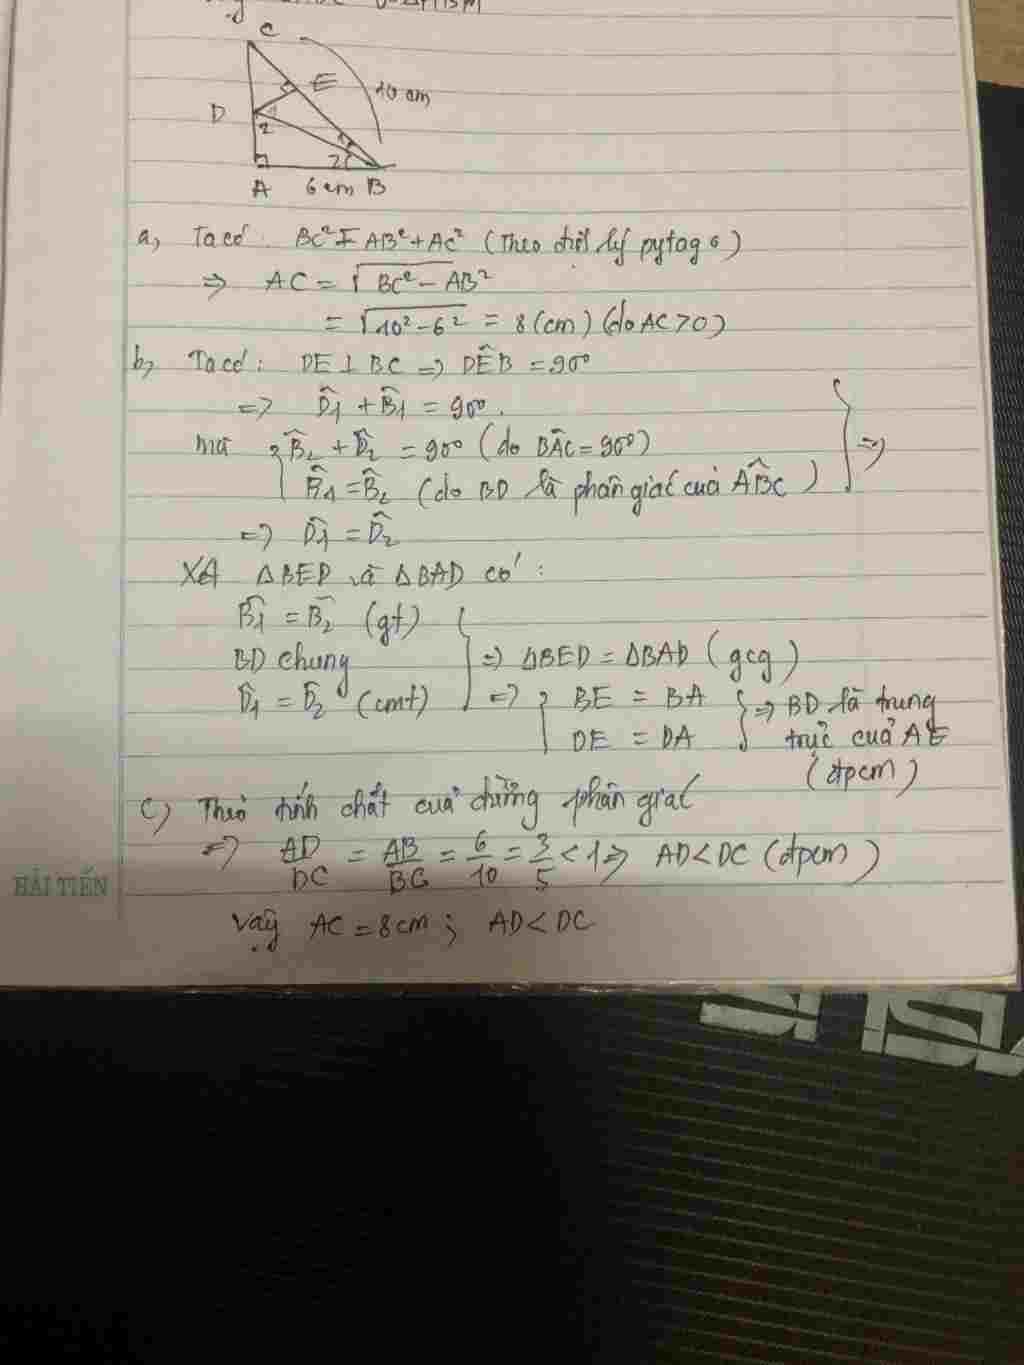 C
E
10 cm
D
1
2
1
2
A 6 cm B
a, Ta có: BC² = AB² + AC² (Theo định lý pytago)
⇒ AC = √BC² − AB²
= √10² − 6² = 8 (cm) (do AC > 0)
b, Ta có: DE ⊥ BC ⇒ DÊB = 90°
⇒ D̂1 + B̂1 = 90°.
mà { B̂2 + D̂2 = 90° (do BÂC = 90°) } ⇒
B̂1 = B̂2 (do BD là phân giác của AB̂C)
⇒ D̂1 = D̂2
Xét ΔBED và ΔBAD có:
B̂1 = B̂2 (gt)
BD chung } ⇒ ΔBED = ΔBAD (gcg)
D̂1 = D̂2 (cmt) ⇒ { BE = BA } ⇒ BD là trung
DE = DA trực của AE
(đpcm)
c) Theo tính chất của đường phân giác
⇒ AD/DC = AB/BC = 6/10 = 3/5 < 1 ⇒ AD < DC (đpcm)
Vậy AC = 8cm; AD < DC
HẢI TIẾN